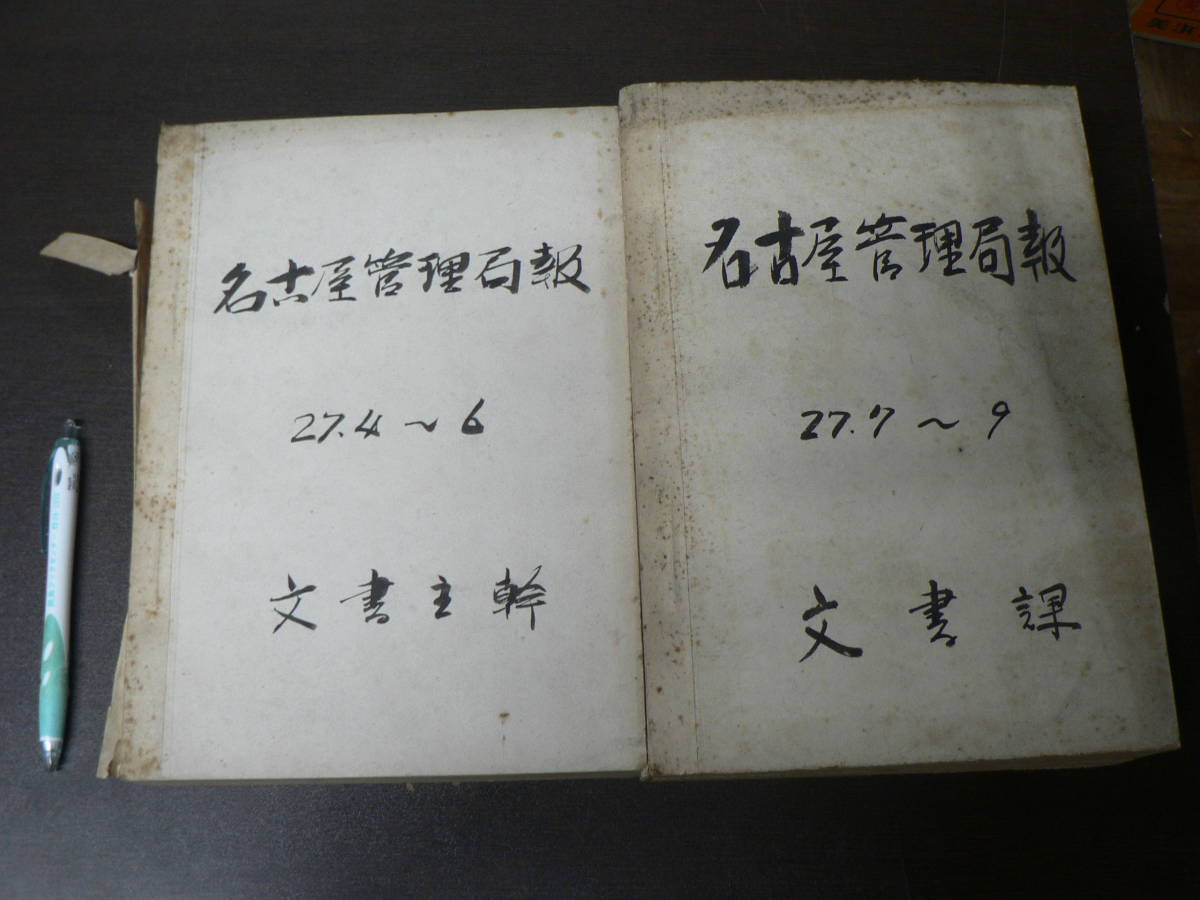 名古屋管理局報
27.4～6
文書主幹
名古屋管理局報
27.7～9
文書課